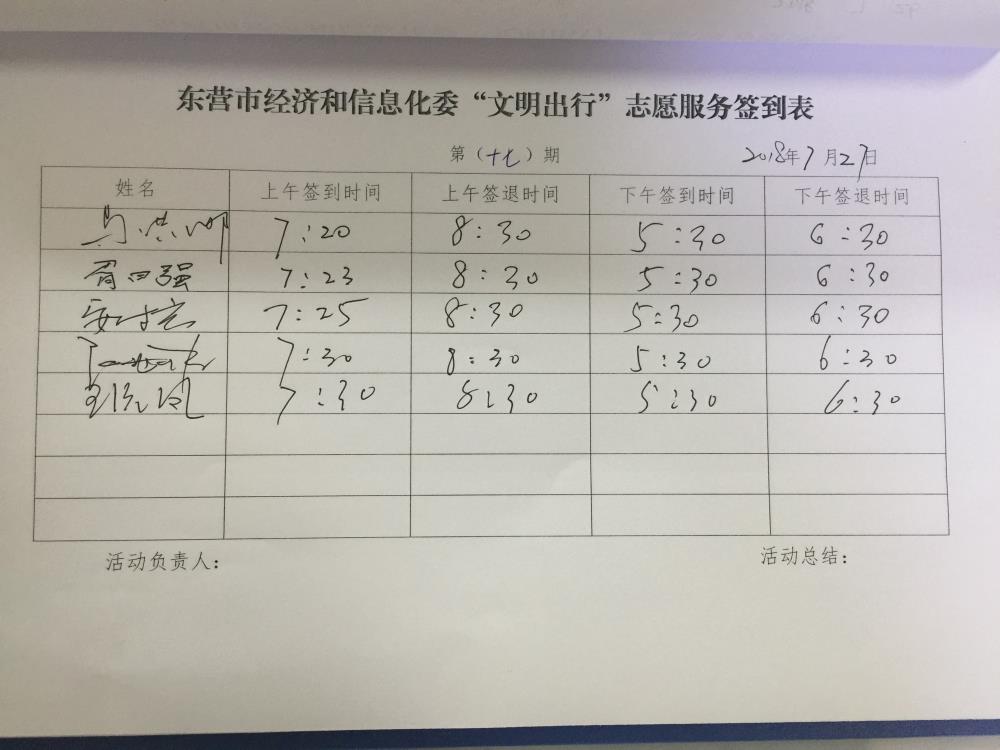 东营市经济和信息化委“文明出行”志愿服务签到表
第（十七）期 2018年7月27日
姓名 上午签到时间 上午签退时间 下午签到时间 下午签退时间
7:20 8:30 5:30 6:30
7:23 8:30 5:30 6:30
7:25 8:30 5:30 6:30
7:30 8:30 5:30 6:30
7:30 8:30 5:30 6:30
活动负责人： 活动总结：